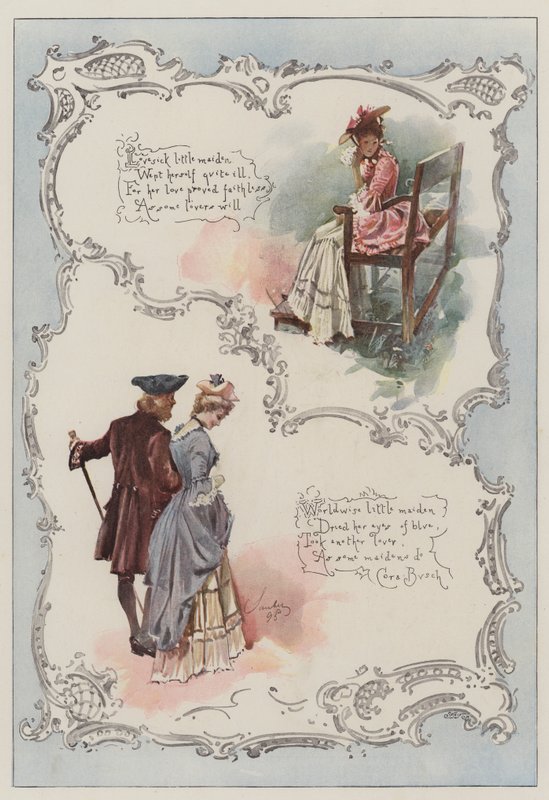 Lovesick little maiden
Wept herself quite ill,
For her love proved faithless,
As some lovers will
Worldwise little maiden
Dried her eyes of blue,
Took another lover,
As some maidens do
Cora Busch
Sauber
98